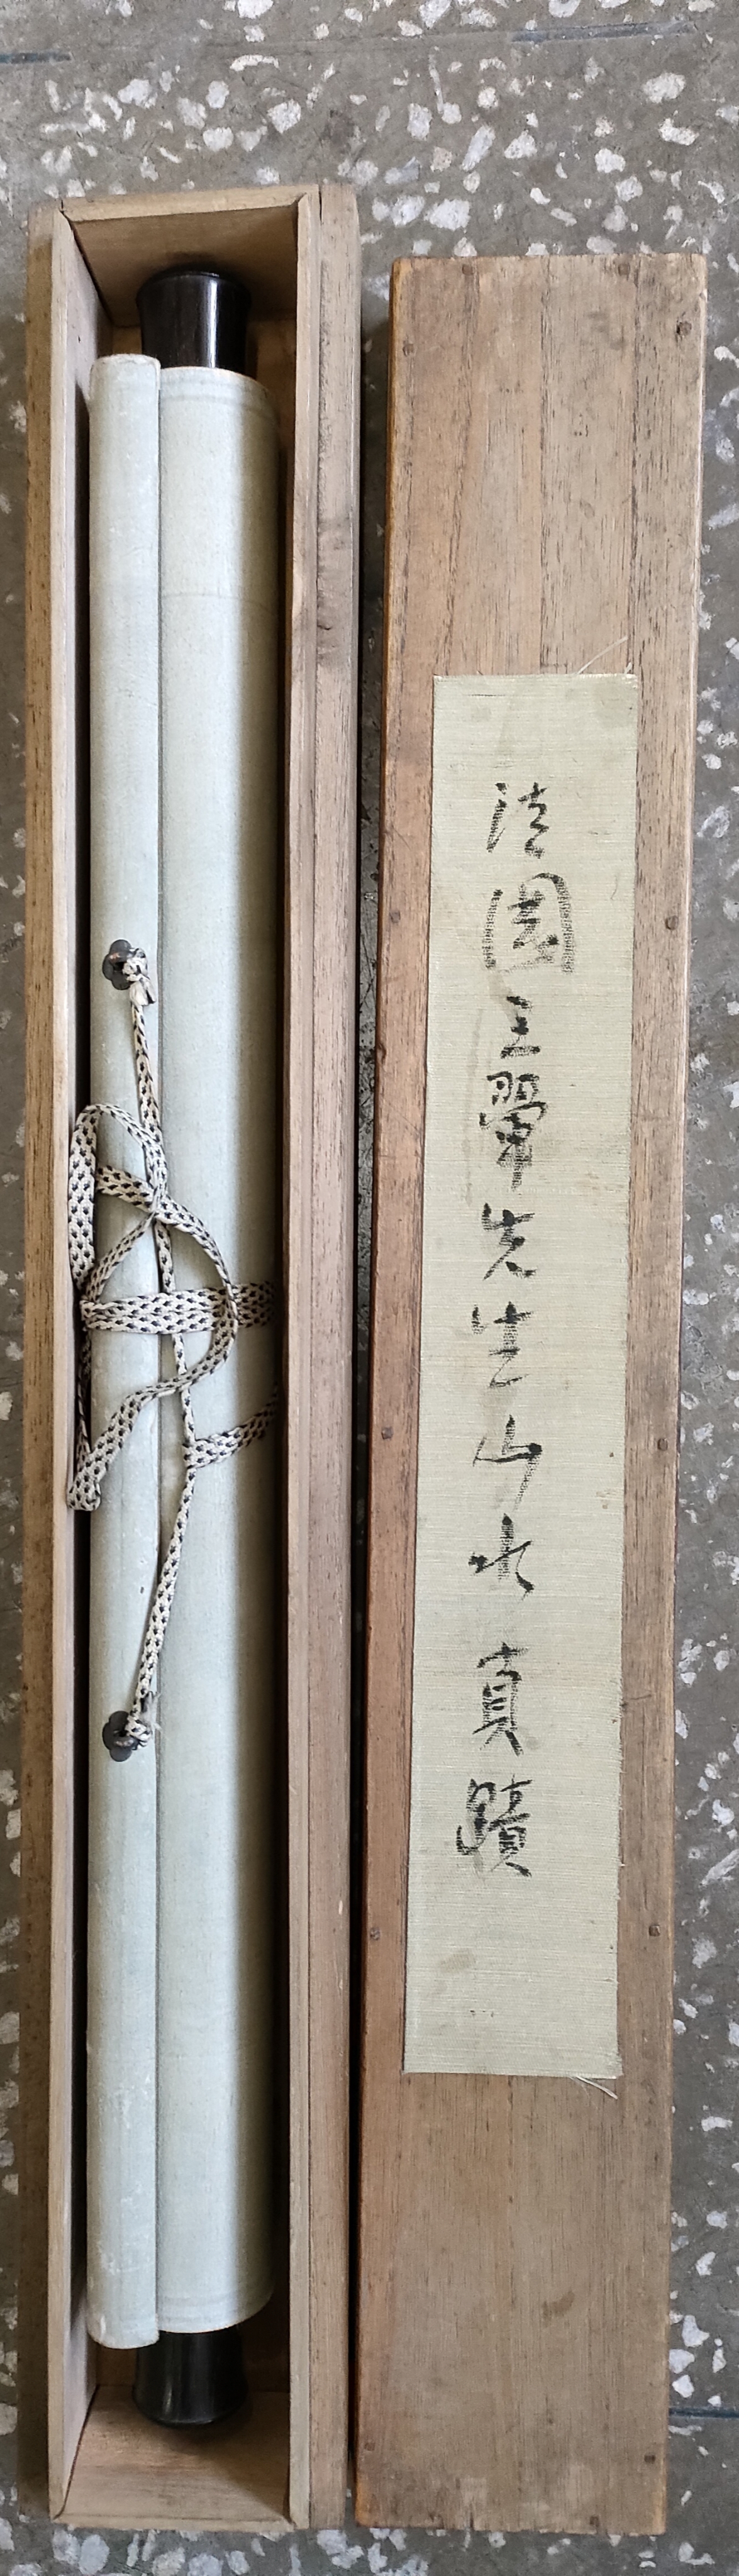 園王翬先生山水真蹟